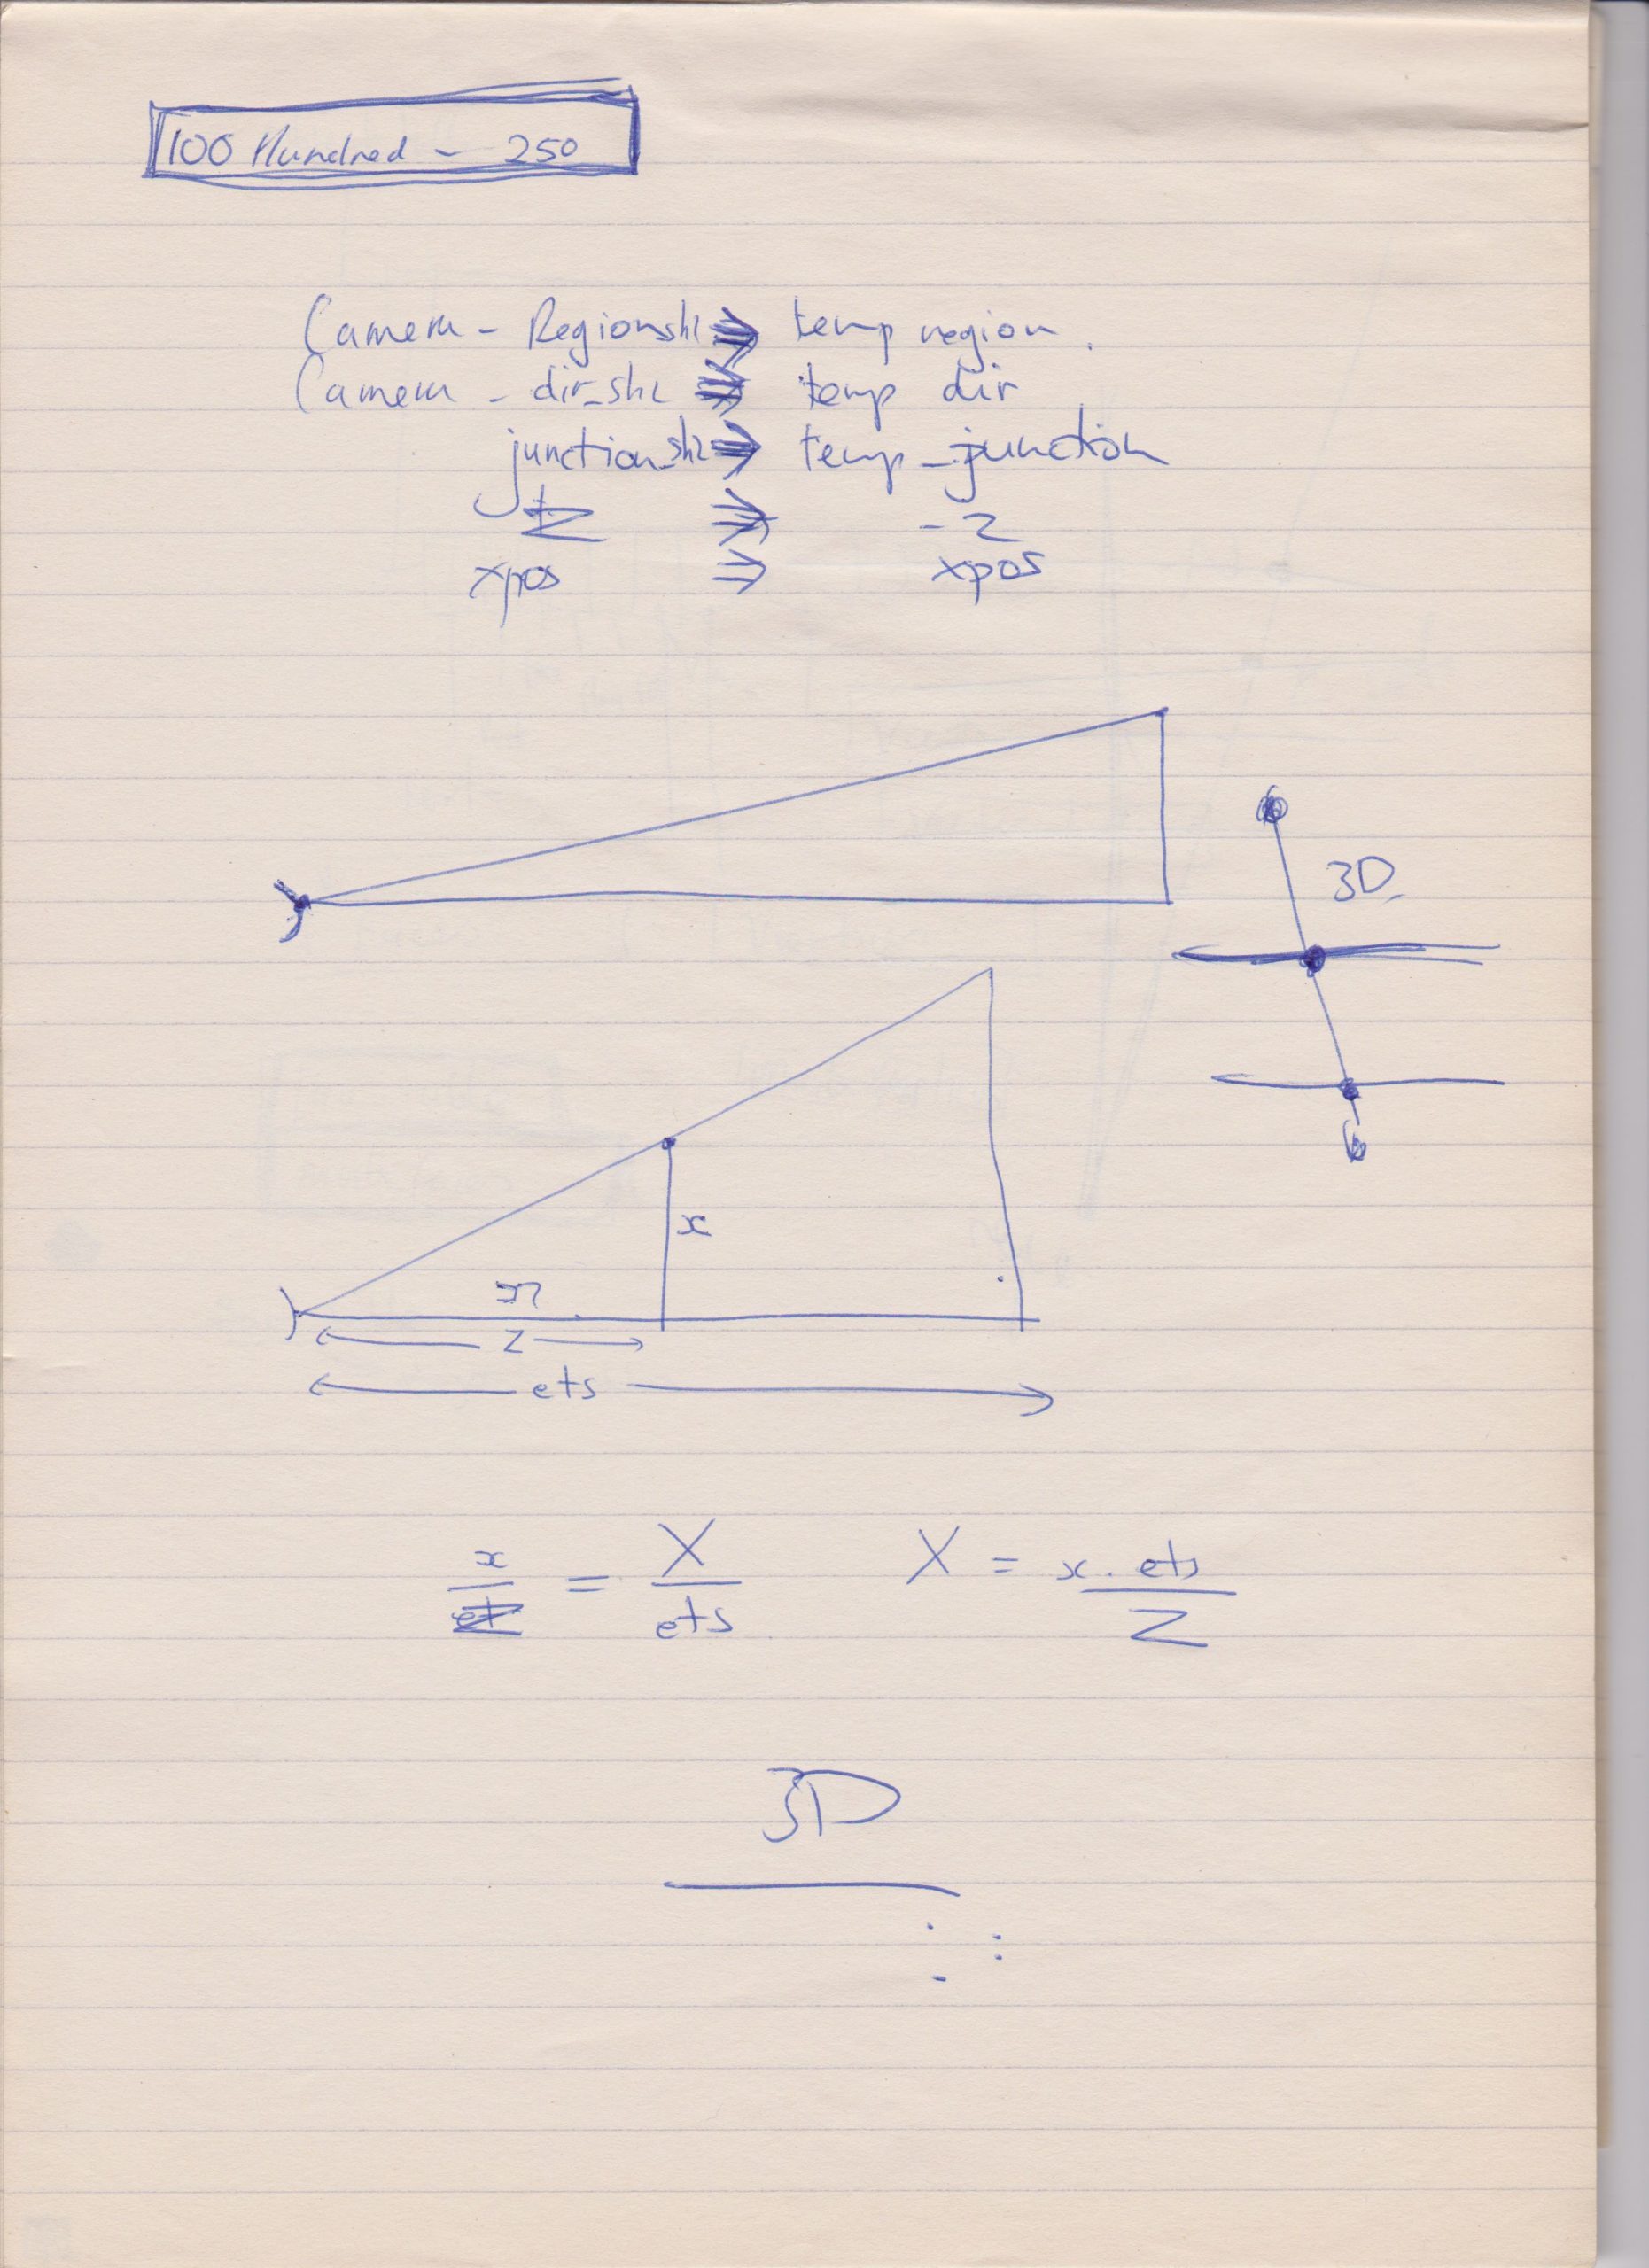 100 Hundred - 250
Camera - Regionshl ⇒ temp region.
Camera - dir_shl ⇒ temp dir
junction_shl ⇒ temp_junction
Z ⇒ -Z
xpos ⇒ xpos
3D
x
z
ets
x/Z = X/ets X = x . ets/Z
3D